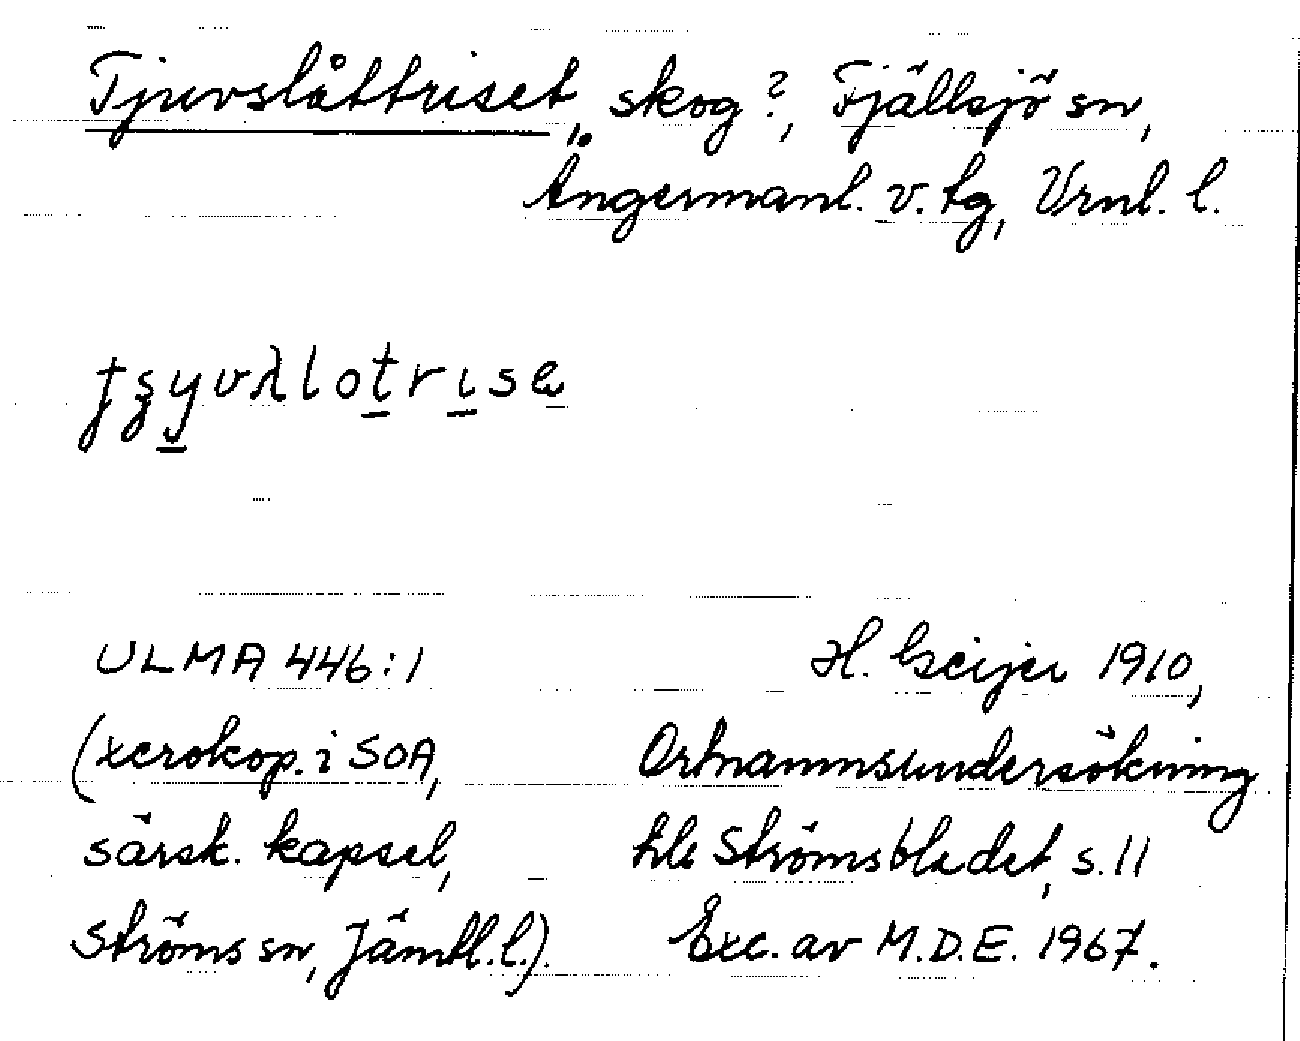 Tjuvslåttriset, skog?, Fjällsjö sn,
Ångermanl. v. tg, Vrnl. l.
ULMA 446:1
H. Geijer 1910,
(xerokop. i SOA,
Ortnamnsundersökning
särsk. kapsel,
Strömsbladet, s. 11
Ströms sn, Jämtl. l.).
Exc. av M.D.E. 1967.